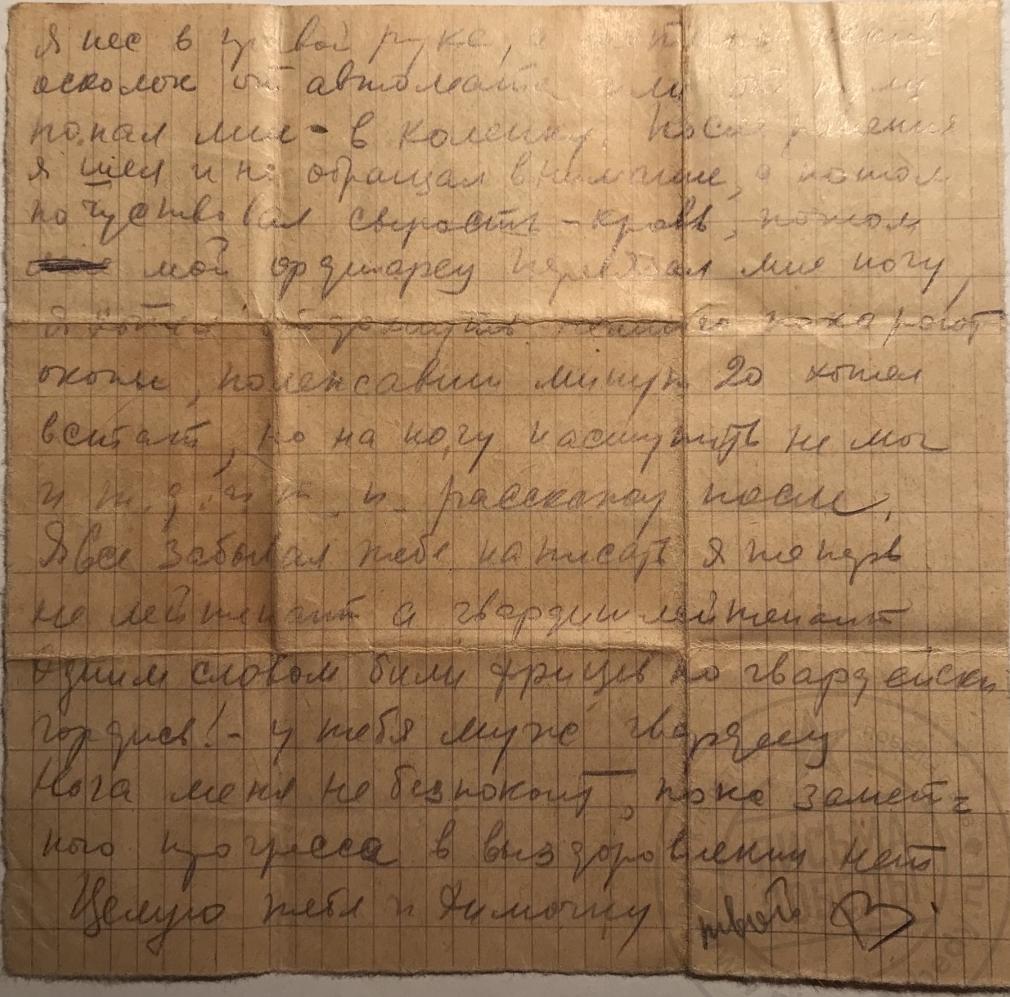 Я нес в правой руке, а
осколок от автомата или от
попал мне в коленку. После ранения
я шел и не обращал внимание, а потом
почуствовал сырость - кровь, потом
мой ординарец перевязал мне ногу,
я
окопы, полежавши минут 20 хотел
встать, но на ногу наступить не мог
и т.д. и т.п. расскажу после.
Я все забывал тебе написать я теперь
не лейтенант а гвардии лейтенант
Одним словом били фрицев по гвардейски
гордись! - у тебя муж гвардеец
Нога меня не безпокоит, пока замет=
ного прогресса в выздоровлении нет
Целую тебя и Димочку твой В.